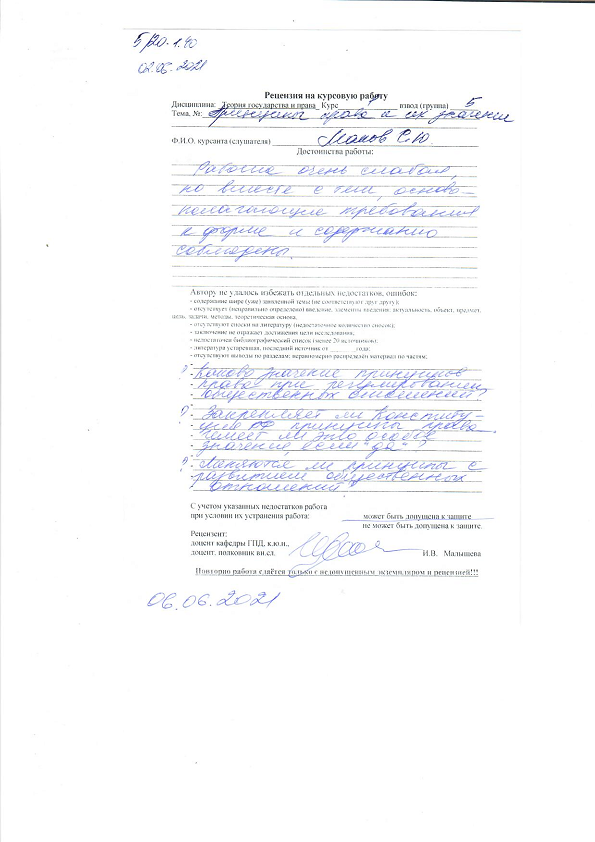 5/20-1.40
02.06.2021
Рецензия на курсовую работу
Дисциплина: Теория государства и права Курс 1 взвод (группа) 5
Тема, №: Принципы права и их значение
Ф.И.О. курсанта (слушателя) С.Ю.
Достоинства работы:
Работа очень слабая,
но вместе с тем, осново-
полагающие требования
к форме и содержанию
соблюдены.
Автору не удалось избежать отдельных недостатков, ошибок:
- содержание шире (уже) заявленной темы (не соответствуют друг другу);
- отсутствует (неправильно определено) введение, элементы введения: актуальность, объект, предмет,
цель, задачи, методы, теоретическая основа;
- отсутствуют сноски на литературу (недостаточное количество сносок);
- заключение не отражает достижения цели исследования;
- недостаточен библиографический список (менее 20 источников);
- литература устаревшая, последний источник от года;
- отсутствуют выводы по разделам; неравномерно распределён материал по частям;
Каково значение принципов
права при регулировании
общественных отношений?
Закрепляет ли Конститу-
ция РФ принципы права.
Имеет ли это особое
значение, если "да"?
Меняются ли принципы с
развитием общественных
отношений
С учетом указанных недостатков работа
при условии их устранения работа: может быть допущена к защите
не может быть допущена к защите
Рецензент:
доцент кафедры ГПД, к.ю.н.,
доцент, полковник вн.сл. И.В. Малышева
Повторно работа сдаётся только с недопущенным экземпляром и рецензией!!!
06.06.2021